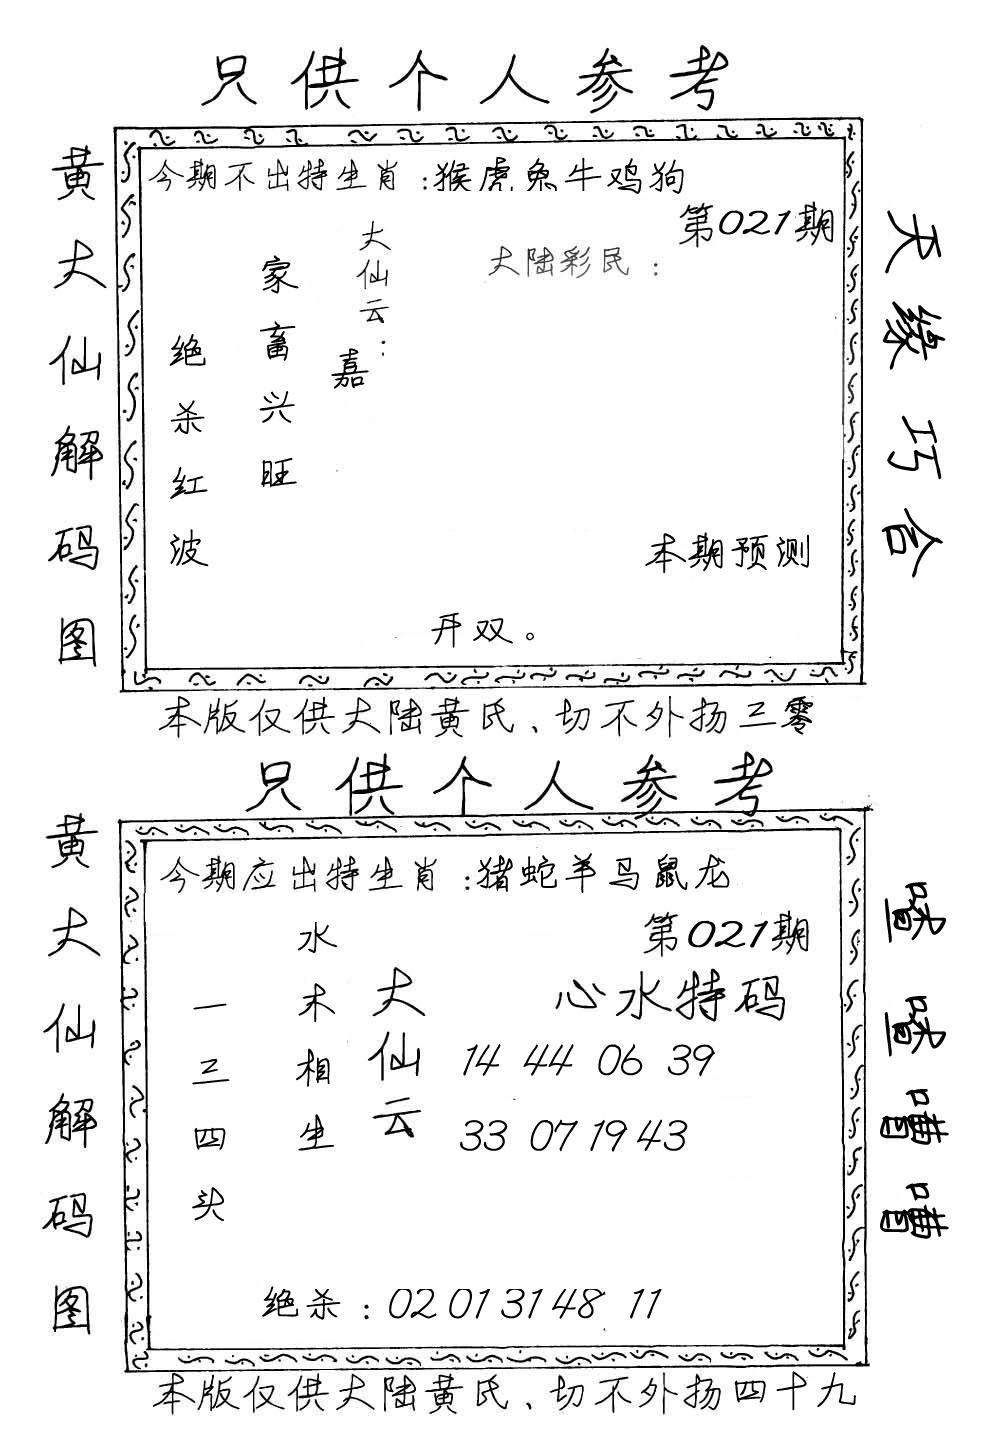 只供个人参考
黄大仙解码图
今期不出特生肖：猴虎兔牛鸡狗
第021期
大仙云：
大陆彩民：
嘉
家畜兴旺
绝杀红波
本期预测
开双。
天缘巧合
本版仅供大陆黄氏、切不外扬三零
只供个人参考
黄大仙解码图
今期应出特生肖：猪蛇羊马鼠龙
第021期
水木相生
一三四头
大仙云
心水特码
14 44 06 39
33 07 19 43
绝杀：02 01 31 48 11
本版仅供大陆黄氏、切不外扬四十九